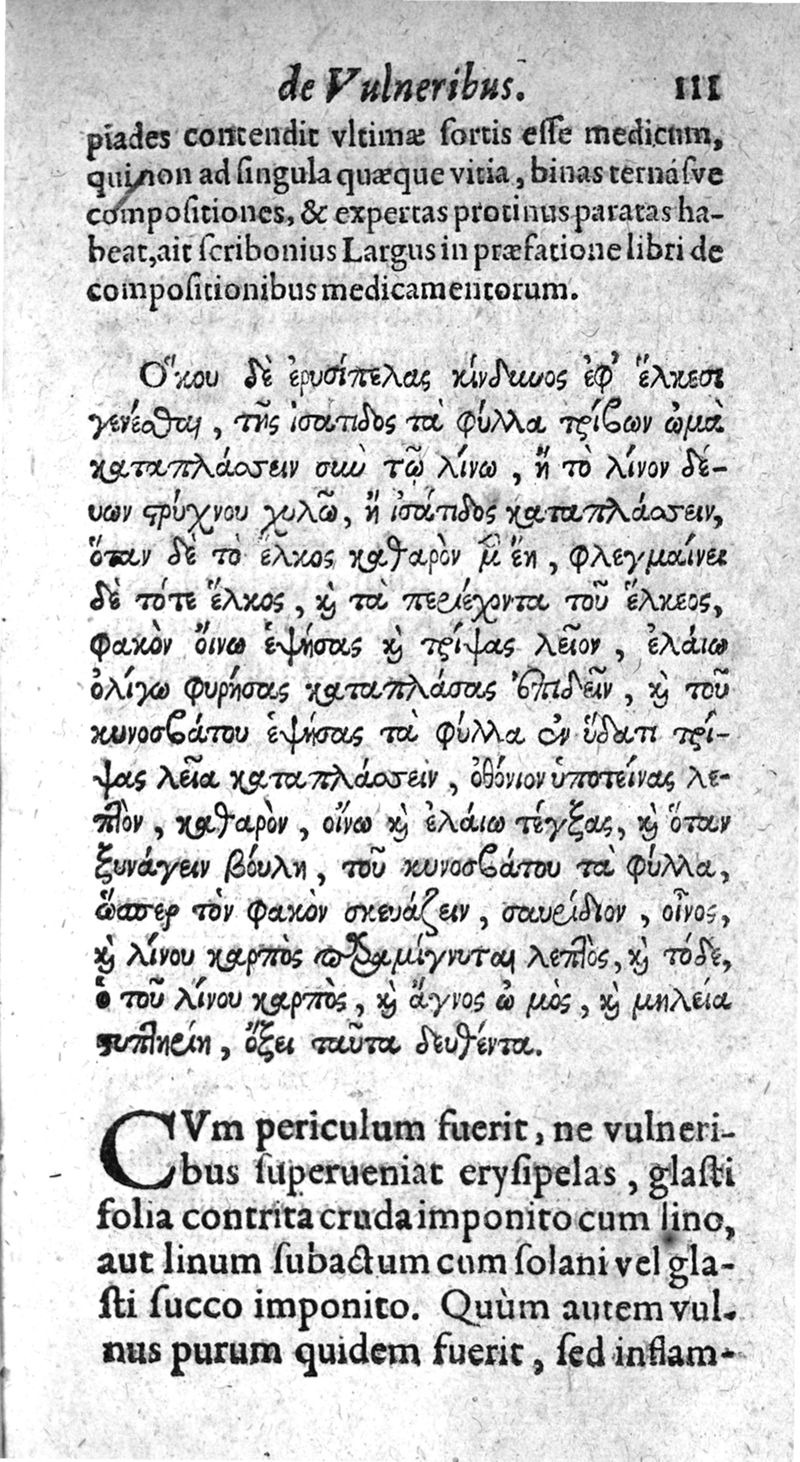 de Vulneribus. 111
piades contendit vltimæ sortis esse medicum,
qui non ad singula quæque vitia, binas ternásve
compositiones, & expertas protinus paratas ha-
beat, ait scribonius Largus in præfatione libri de
compositionibus medicamentorum.
Ὅκου δὲ ἐρυσίπελας κίνδυνος ἐφ' ἕλκεσι
γενέσθαι, τῆς ἰσάτιδος τὰ φύλλα τρίβων ὠμὰ
καταπλάσσειν σὺν τῷ λίνω, ἢ τὸ λίνον δέ-
υων στρύχνου χυλῶ, ἢ ἰσάτιδος καταπλάσσειν,
ὅταν δὲ τὸ ἕλκος καθαρὸν μ ἔη, φλεγμαίνει
δὲ τότε ἕλκος, καὶ τὰ περιέχοντα τοῦ ἕλκεος,
φακὸν οἴνω ἑψήσας καὶ τρίψας λεῖον, ἐλάιω
ὀλίγω φυρήσας καταπλάσας ἐπιδεῖν, καὶ τοῦ
κυνοσβάτου ἑψήσας τὰ φύλλα ἐν ὕδατι τρί-
ψας λεῖα καταπλάσσειν, ὀθόνιον ὑποτείνας λε-
πτὸν, καθαρὸν, οἴνω καὶ ἐλάιω τέγξας, καὶ ὅταν
ξυνάγειν βούλη, τοῦ κυνοσβάτου τὰ φύλλα,
ὥσπερ τὸν φακὸν σκευάζειν, σαυρίδιον, οἶνος,
καὶ λίνου καρπὸς παραμίγνυται λεπτὸς, καὶ τόδε,
ὁ τοῦ λίνου καρπὸς, καὶ ἄγνος ὠ μὸς, καὶ μηλεία
στυπτηρίη, ὄξει ταῦτα δευθέντα.
CVm periculum fuerit, ne vulneri-
bus superueniat erysipelas, glasti
folia contrita cruda imponito cum lino,
aut linum subactum cum solani vel gla-
sti succo imponito. Quùm autem vul-
nus purum quidem fuerit, sed inflam-